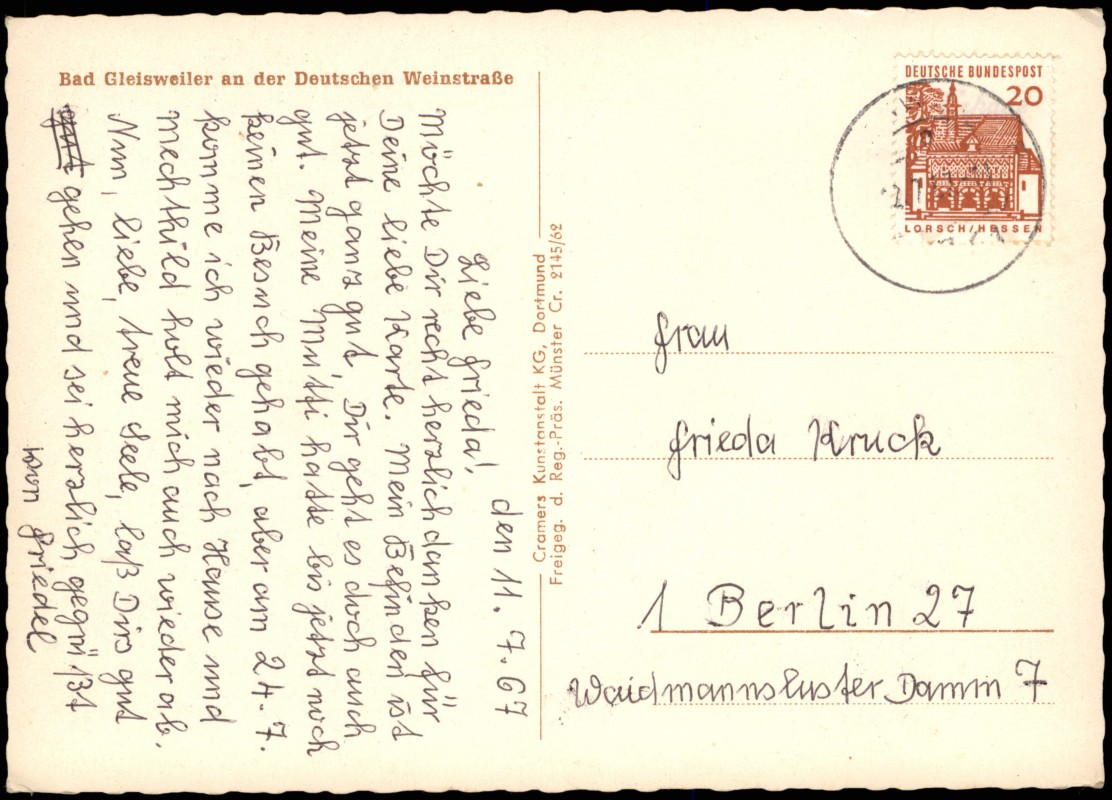 Bad Gleisweiler an der Deutschen Weinstraße
den 11. 7. 67
Liebe Frieda!
Möchte Dir recht herzlich danken für
Deine liebe Karte. Mein Befinden ist
jetzt ganz gut, Dir geht es doch auch
gut. Meine Mutti hatte bis jetzt noch
keinen Besuch gehabt, aber am 24. 7.
komme ich wieder nach Hause und
Mechthild holt mich auch wieder ab.
Nun, liebe, treue Seele, laß Dirs gut
gut gehen und sei herzlich gegrüßt
von Friedel
Cramers Kunstanstalt KG, Dortmund
Freigeg. d. Reg.-Präs. Münster Cr. 2145/62
DEUTSCHE BUNDESPOST
20
LORSCH/HESSEN
Frau
Frieda Kruck
1 Berlin 27
Waidmannsluster Damm 7